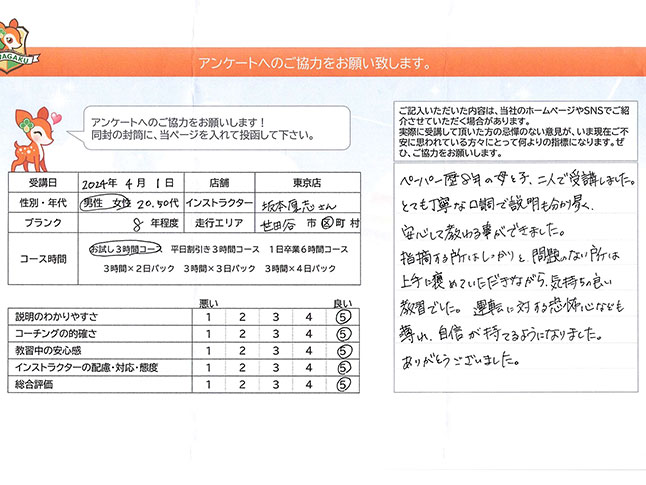 NAGAKU
アンケートへのご協力をお願い致します。
アンケートへのご協力をお願いします！
同封の封筒に、当ページを入れて投函して下さい。
受講日 2024年 4月 1日 店舗 東京店
性別・年代 男性 女性 20.50代 インストラクター 坂本厚志さん
ブランク 8 年程度 走行エリア 世田谷 市 区 町 村
コース時間 お試し3時間コース 平日割引き3時間コース 1日卒業6時間コース
3時間×2日パック 3時間×3日パック 3時間×4日パック
悪い 良い
説明のわかりやすさ 1 2 3 4 5
コーチングの的確さ 1 2 3 4 5
教習中の安心感 1 2 3 4 5
インストラクターの配慮・対応・態度 1 2 3 4 5
総合評価 1 2 3 4 5
ご記入いただいた内容は、当社のホームページやSNSでご紹
介させていただく場合があります。
実際に受講して頂いた方の忌憚のない意見が、いま現在ご不
安に思われている方々にとって何よりの指標になります。ぜ
ひ、ご協力をお願いします。
ペーパー歴8年の母と子、二人で受講しました。
とても丁寧な口調で説明も分かり易く、
安心して教わる事ができました。
指摘する所はしっかりと、問題のない所は
上手に褒めていただきながら、気持ちの良い
教習でした。運転に対する恐怖心なども
薄れ、自信が持てるようになりました。
ありがとうございました。